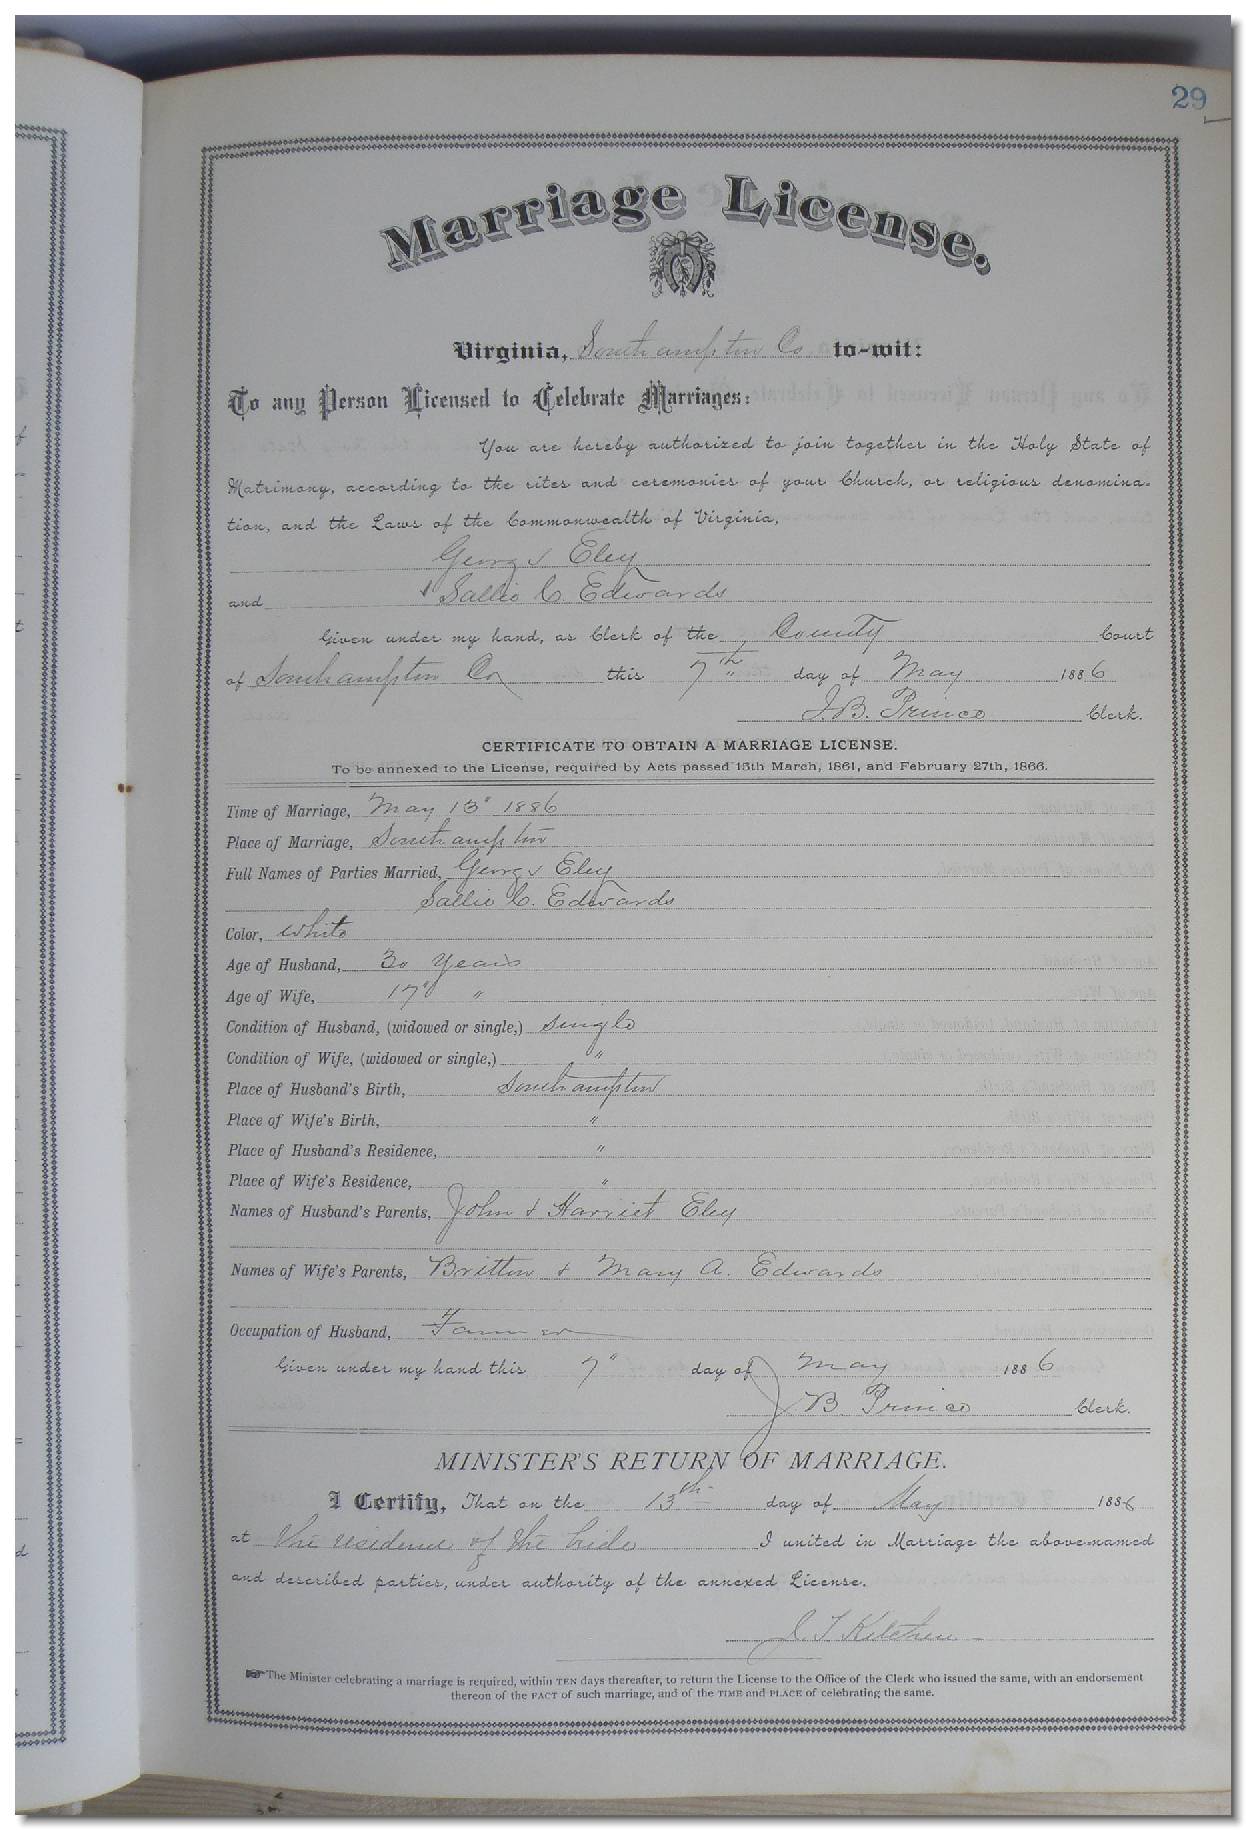 29
Marriage License.
Virginia, Southampton Co to-wit:
To any Person Licensed to Celebrate Marriages:
You are hereby authorized to join together in the Holy State of
Matrimony, according to the rites and ceremonies of your Church, or religious denomina-
tion, and the Laws of the Commonwealth of Virginia,
George Eley
and Sallie C Edwards
Given under my hand, as Clerk of the County Court
of Southampton Co this 7th day of May 1886
J. B. Prince Clerk.
CERTIFICATE TO OBTAIN A MARRIAGE LICENSE.
To be annexed to the License, required by Acts passed 15th March, 1861, and February 27th, 1866.
Time of Marriage, May 13" 1886
Place of Marriage, Southampton
Full Names of Parties Married, George Eley
Sallie C. Edwards
Color, White
Age of Husband, 30 Years
Age of Wife, 17 "
Condition of Husband, (widowed or single,) Single
Condition of Wife, (widowed or single,) "
Place of Husband's Birth, Southampton
Place of Wife's Birth, "
Place of Husband's Residence, "
Place of Wife's Residence, "
Names of Husband's Parents, John & Harriet Eley
Names of Wife's Parents, Britton & Mary A. Edwards
Occupation of Husband, Farmer
Given under my hand this 7" day of May 1886
J B Prince Clerk.
MINISTER'S RETURN OF MARRIAGE.
I Certify, That on the 13th day of May 1886
at the residence of the bride I united in Marriage the above-named
and described parties, under authority of the annexed License.
J. T. Kitchen
The Minister celebrating a marriage is required, within TEN days thereafter, to return the License to the Office of the Clerk who issued the same, with an endorsement
thereon of the FACT of such marriage, and of the TIME and PLACE of celebrating the same.